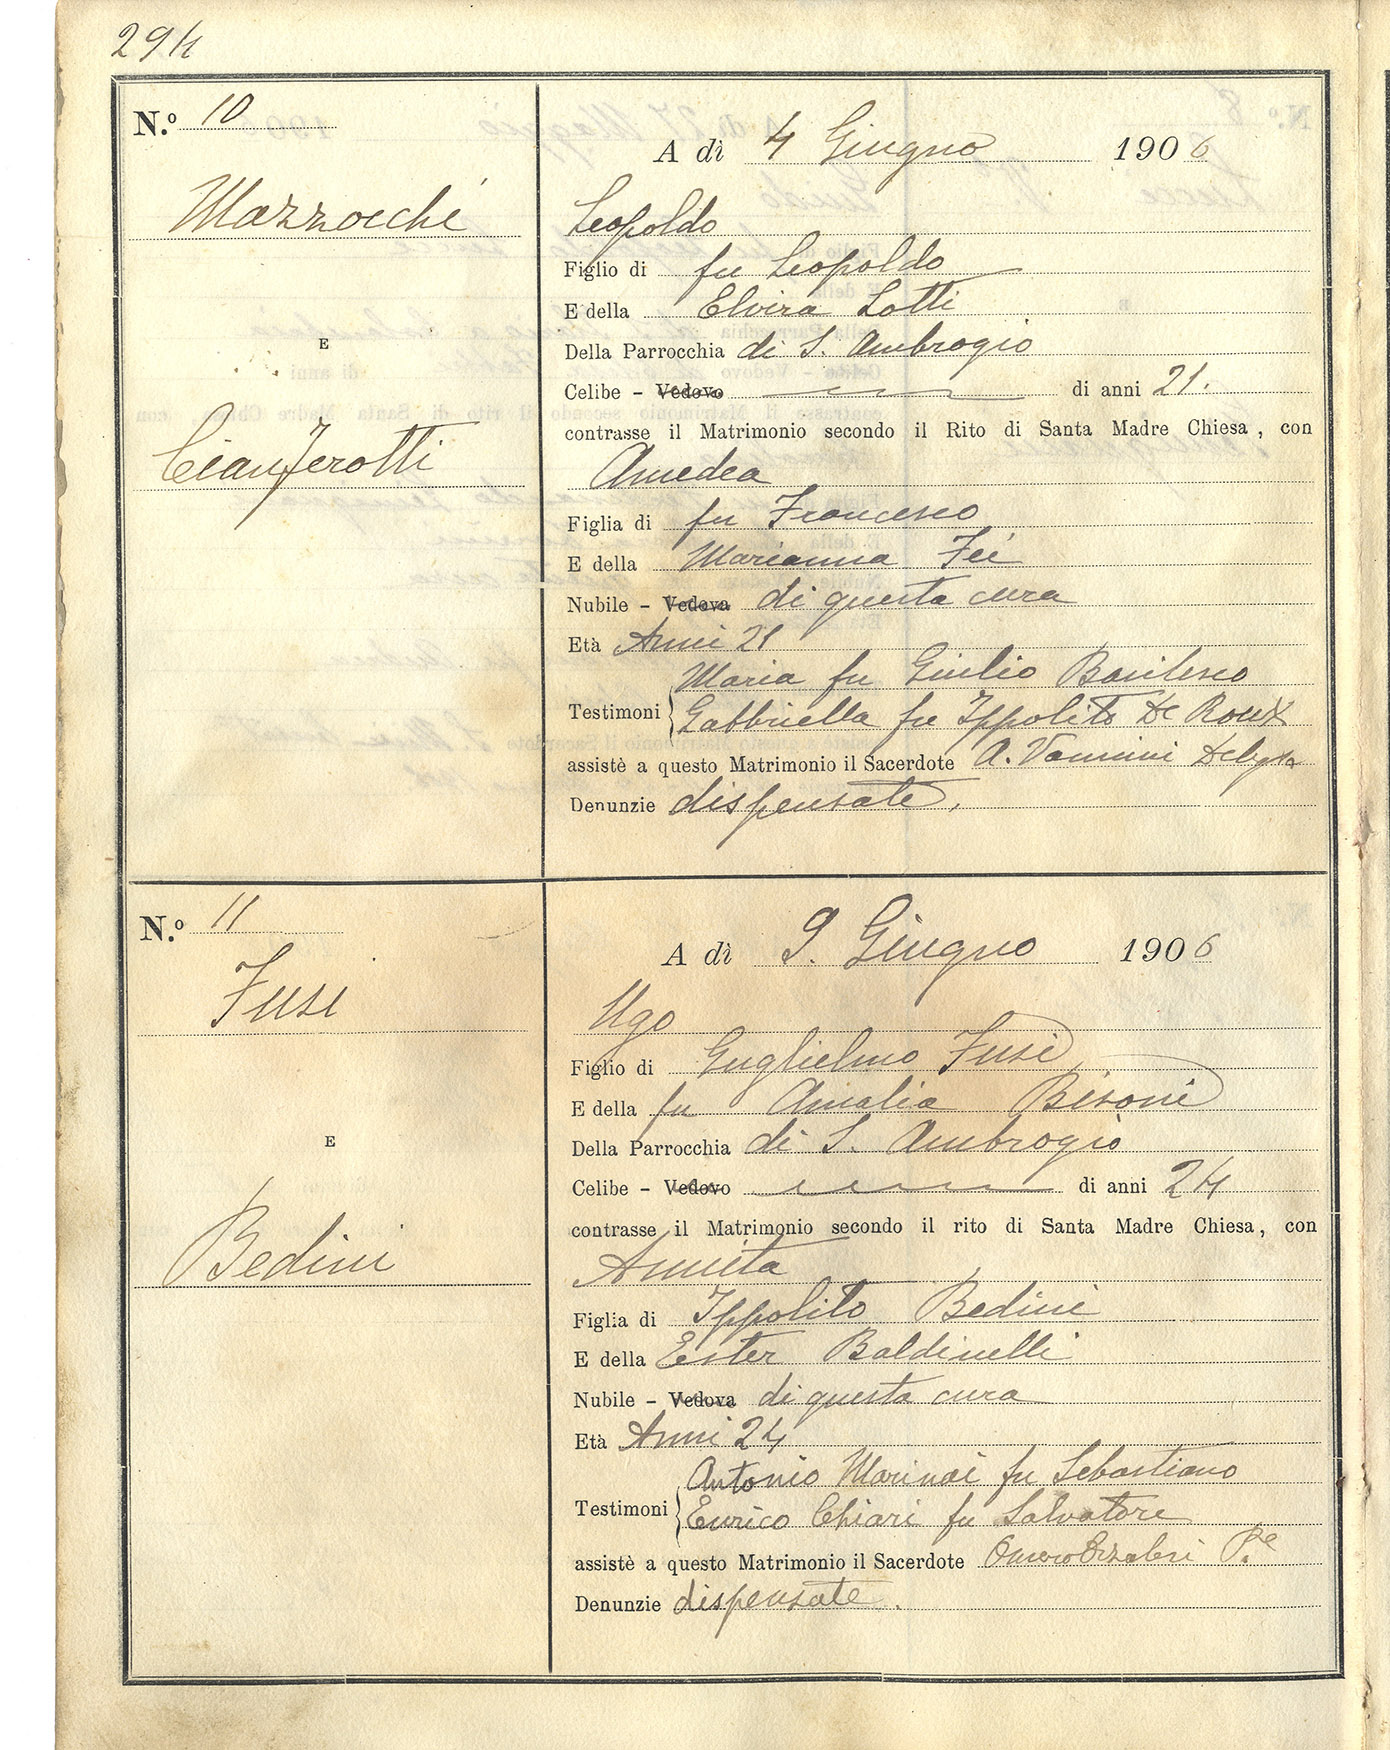 294
N.º 10
A dì 4 Giugno 1906
Mazzocchi
Leopoldo
Figlio di fu Leopoldo
E della Elvira Lotti
E
Della Parrocchia di S. Ambrogio
Celibe - Vedovo di anni 21.
contrasse il Matrimonio secondo il Rito di Santa Madre Chiesa, con
Cianferotti
Amedea
Figlia di fu Francesco
E della Marianna Fei
Nubile - Vedova di questa cura
Età Anni 21
Maria fu Giulio
Testimoni Gabbriella fu Ippolito De Roux
assistè a questo Matrimonio il Sacerdote A. Vannini
Denunzie dispensate,
N.º 11
A dì 9. Giugno 1906
Fusi
Ugo
Figlio di Guglielmo Fusi
E della fu Amalia Bisoni
E
Della Parrocchia di S. Ambrogio
Celibe - Vedovo di anni 24
contrasse il Matrimonio secondo il rito di Santa Madre Chiesa, con
Bedini
Annita
Figlia di Ippolito Bedini
E della Ester Baldinelli
Nubile - Vedova di questa cura
Età Anni 24
Antonio Marinai fu Sebastiano
Testimoni Enrico Chiari fu Salvatore
assistè a questo Matrimonio il Sacerdote
Denunzie dispensate.